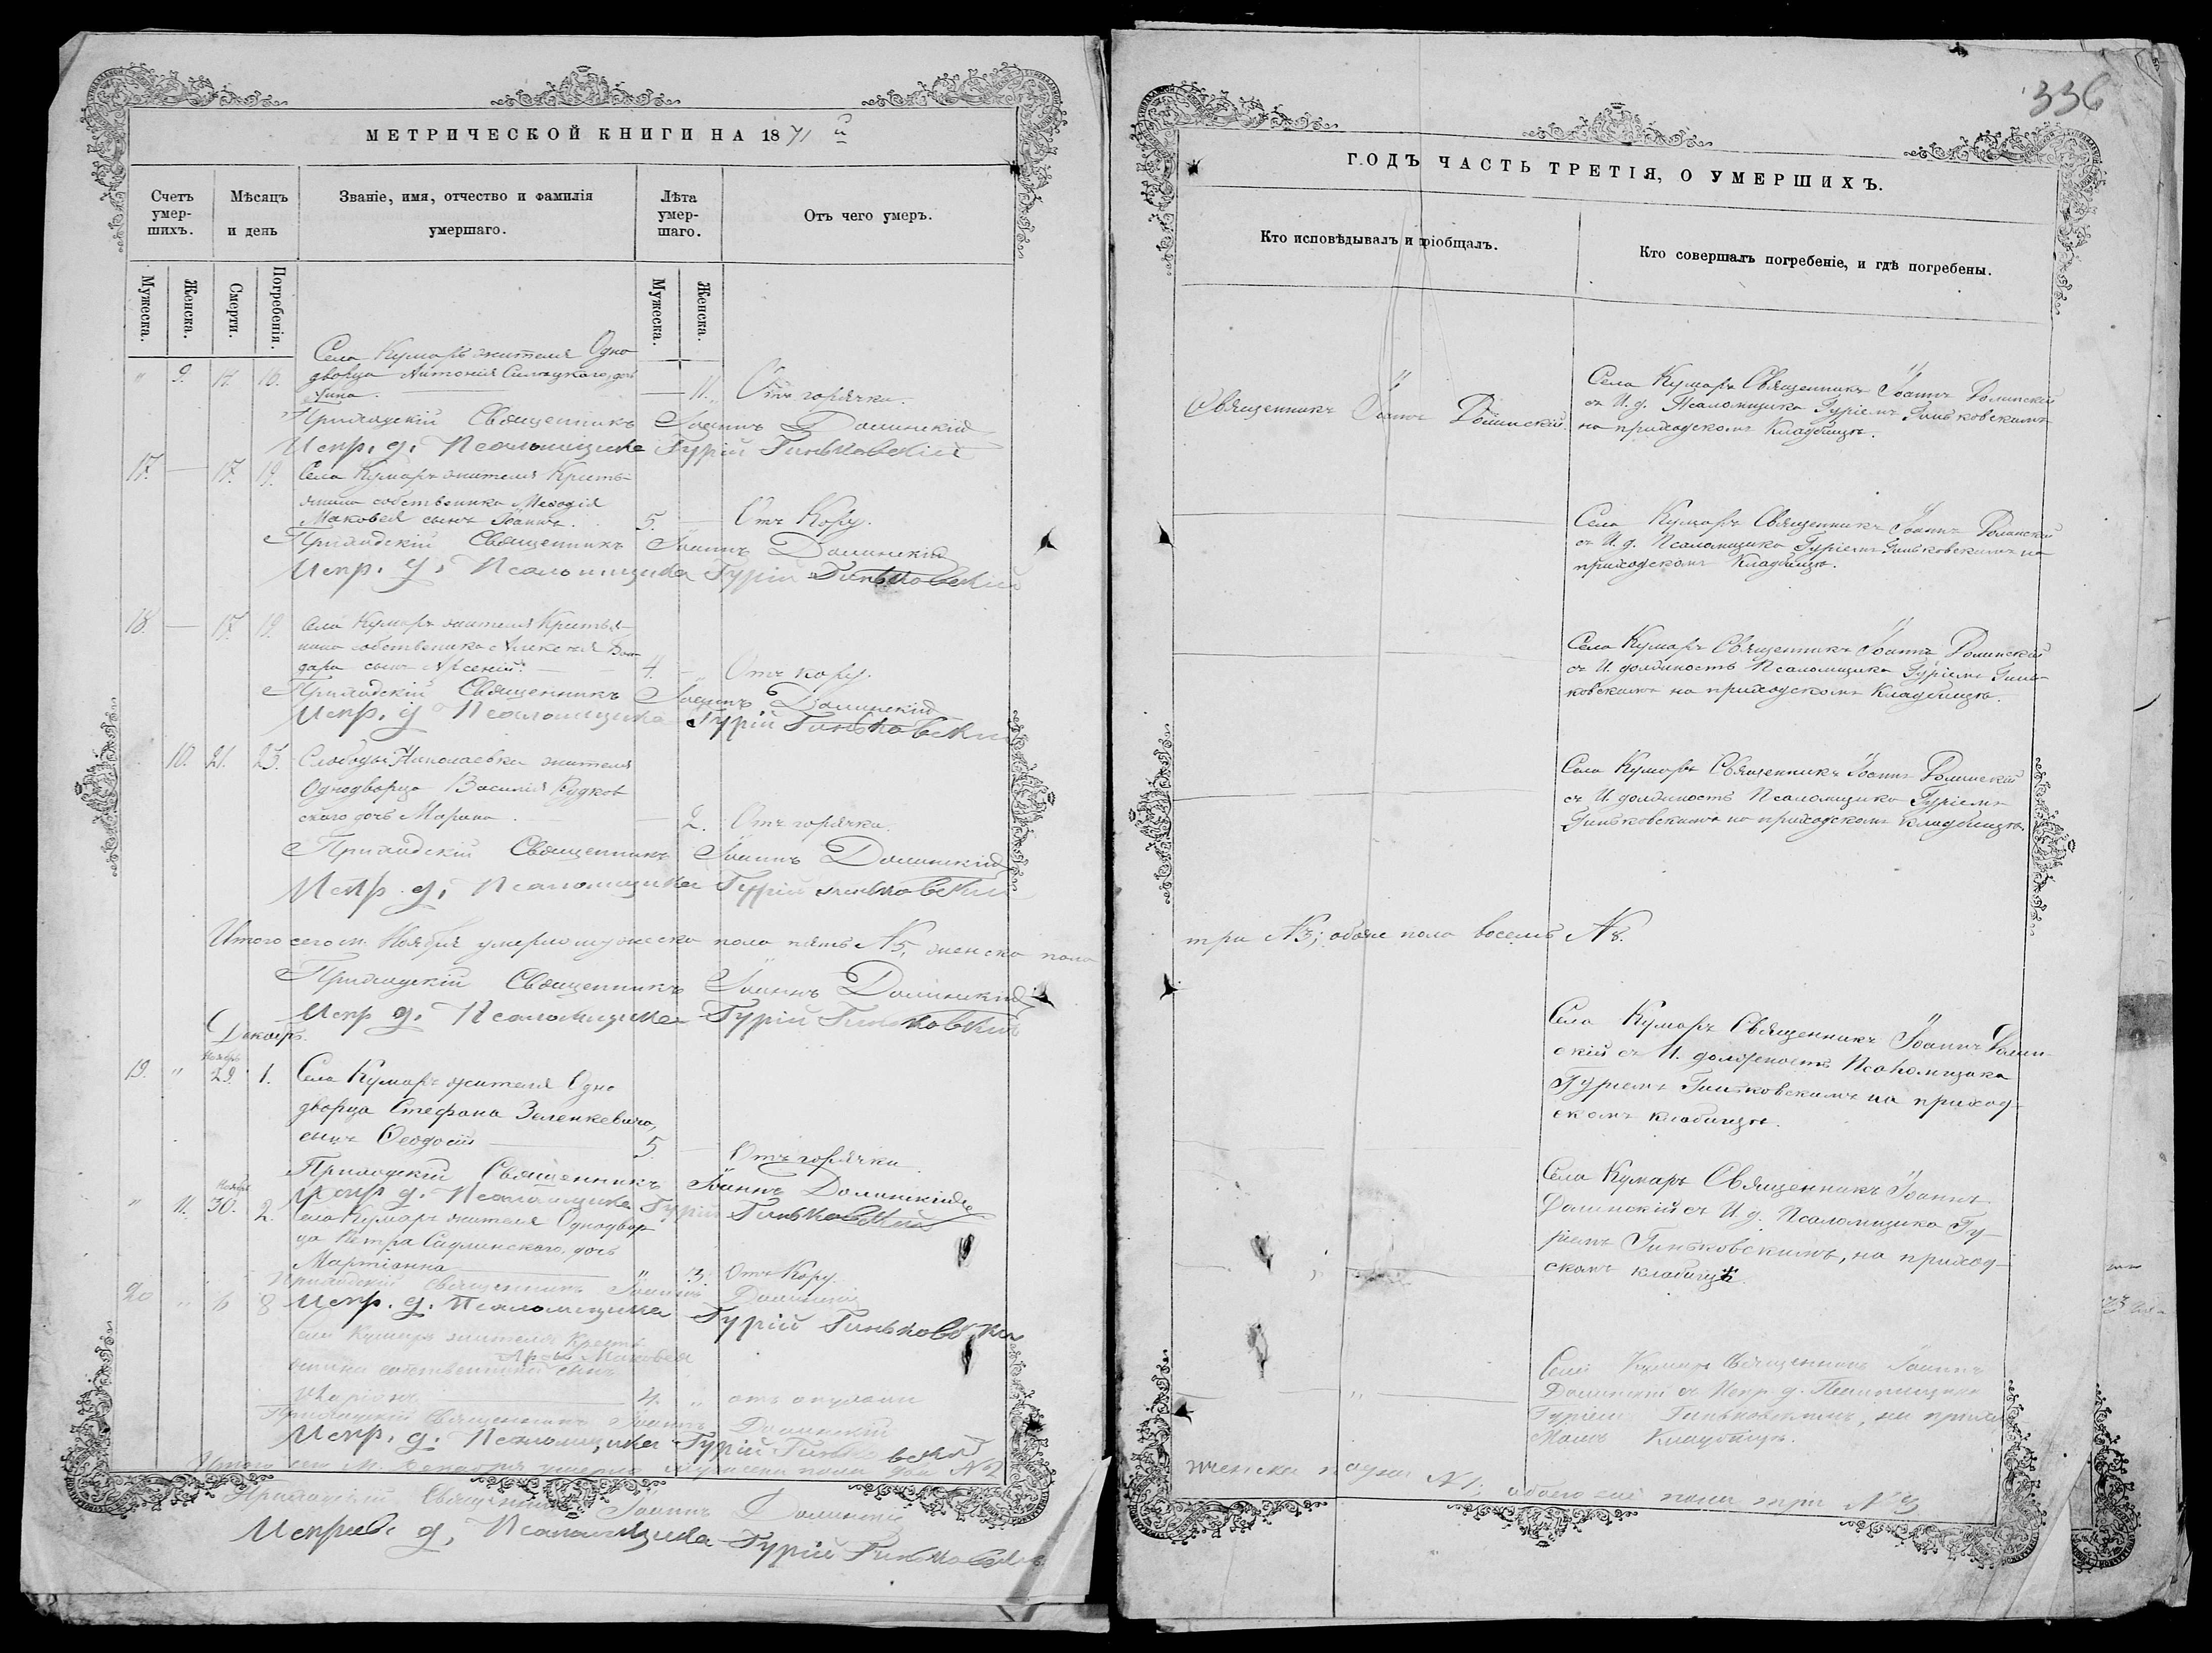 МЕТРИЧЕСКОЙ КНИГИ НА 1871 й
Счетъ умер-шихъ.
Мѣсяцъ и день
Званіе, имя, отчество и фамилія умершаго.
Лѣта умер-шаго.
Отъ чего умеръ.
Мужеска.
Женска.
Смерти.
Погребенія.
Мужеска.
Женска.
Села Кумаръ жителя Одно
" 9. 14. 16. дворца Антонія дочь
11. Отъ горячки.
Приходскій Священникъ Іоаннъ Долинскій
Испр. д. Псаломщика Гурій Гиньковскій
17. — 17. 19. Села Кумаръ жителя Кресть-
янина собственника Меѳодія
Маковея сынъ Іоаннъ. 5. — Отъ Кору.
Приходскій Священникъ Іоаннъ Долинскій
Испр. д. Псаломщика Гурій Гиньковскій
18. — 17. 19. Села Кумаръ жителя Крестья-
нина собственника Алексея
сынъ Арсеній. 4. — Отъ кору.
Приходскій Священникъ Іоаннъ Долинскій
Испр. д. Псаломщика Гурій Гиньковскій
10. 21. 23. Слободы Николаевки жителя
Однодворца Василія Рудков
скаго дочь Марина. — 2. Отъ горячки.
Приходскій Священникъ Іоаннъ Долинскій
Испр. д. Псаломщика Гурій Гиньковскій
Итого сего м. Ноября умерло мужеска пола пять №5, женска пола
Приходскій Священникъ Іоаннъ Долинскій
Испр д. Псаломщика Гурій Гиньковскій
Декабрь.
Ноябрь
19. " 29. 1. Села Кумаръ жителя Одно
дворца Стефана Зеленкевича,
сынъ Ѳеодосій 5. — Отъ горячки.
Приходскій Священникъ Іоаннъ Долинскій
Испр д. Псаломщика Гурій Гиньковскій
Ноября
" 11. 30. 2. Села Кумаръ жителя Однодвор
ца Петра дочь
Мартіанна " 3. Отъ Кору.
Приходскій Священникъ Іоаннъ Долинскій
20 " 6 8 Испр. д. Псаломщика Гурій Гиньковскій
Села Кумаръ жителя Кресть
Маковея
янина собственника сынъ
4. " отъ
Приходскій Священникъ Іоаннъ Долинскій
Испр. д. Псаломщика Гурій Гиньковскій
Итого сего М. Декабря умерло мужеска пола два №2
Приходскій Священникъ Іоаннъ Долинскій
д. Псаломщика Гурій Гиньковскій
336
ГОДЪ ЧАСТЬ ТРЕТІЯ, О УМЕРШИХЪ.
Кто исповѣдывалъ и пріобщалъ.
Кто совершалъ погребеніе, и гдѣ погребены.
Священникъ Іоаннъ Долинскій.
Села Кумаръ Священникъ Іоаннъ Долинскій
съ И. д. Псаломщика Гуріемъ Гиньковскимъ
на приходскомъ Кладбищѣ.
Села Кумаръ Священникъ Іоаннъ Долинскій
съ И. д. Псаломщика Гуріемъ Гиньковскимъ на
приходскомъ Кладбищѣ.
Села Кумаръ Священникъ Іоаннъ Долинскій
съ И. должность Псаломщика Гуріемъ Гинь-
ковскимъ на приходскомъ Кладбищѣ.
Села Кумаръ Священникъ Іоаннъ Долинскій
съ И. должность Псаломщика Гуріемъ
Гиньковскимъ на приходскомъ Кладбищѣ.
три №3; обоего пола восемь №8.
Села Кумаръ Священникъ Іоаннъ Долин-
скій съ И. должность Псаломщика
Гуріемъ Гиньковскимъ на приход-
скомъ кладбищѣ.
Села Кумаръ Священникъ Іоаннъ
Долинскій съ И д. Псаломщика Гу-
ріемъ Гиньковскимъ, на приход-
скомъ кладбищѣ.
Села Кумаръ Священникъ Іоаннъ
Долинскій съ Испр. д. Псаломщика
Гуріемъ Гиньковскимъ, на
Кладбищѣ.
женска №1, обоего пола три №3